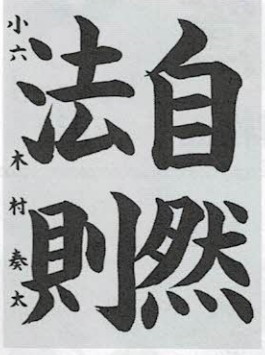 自然
法則
小六 木村奏太